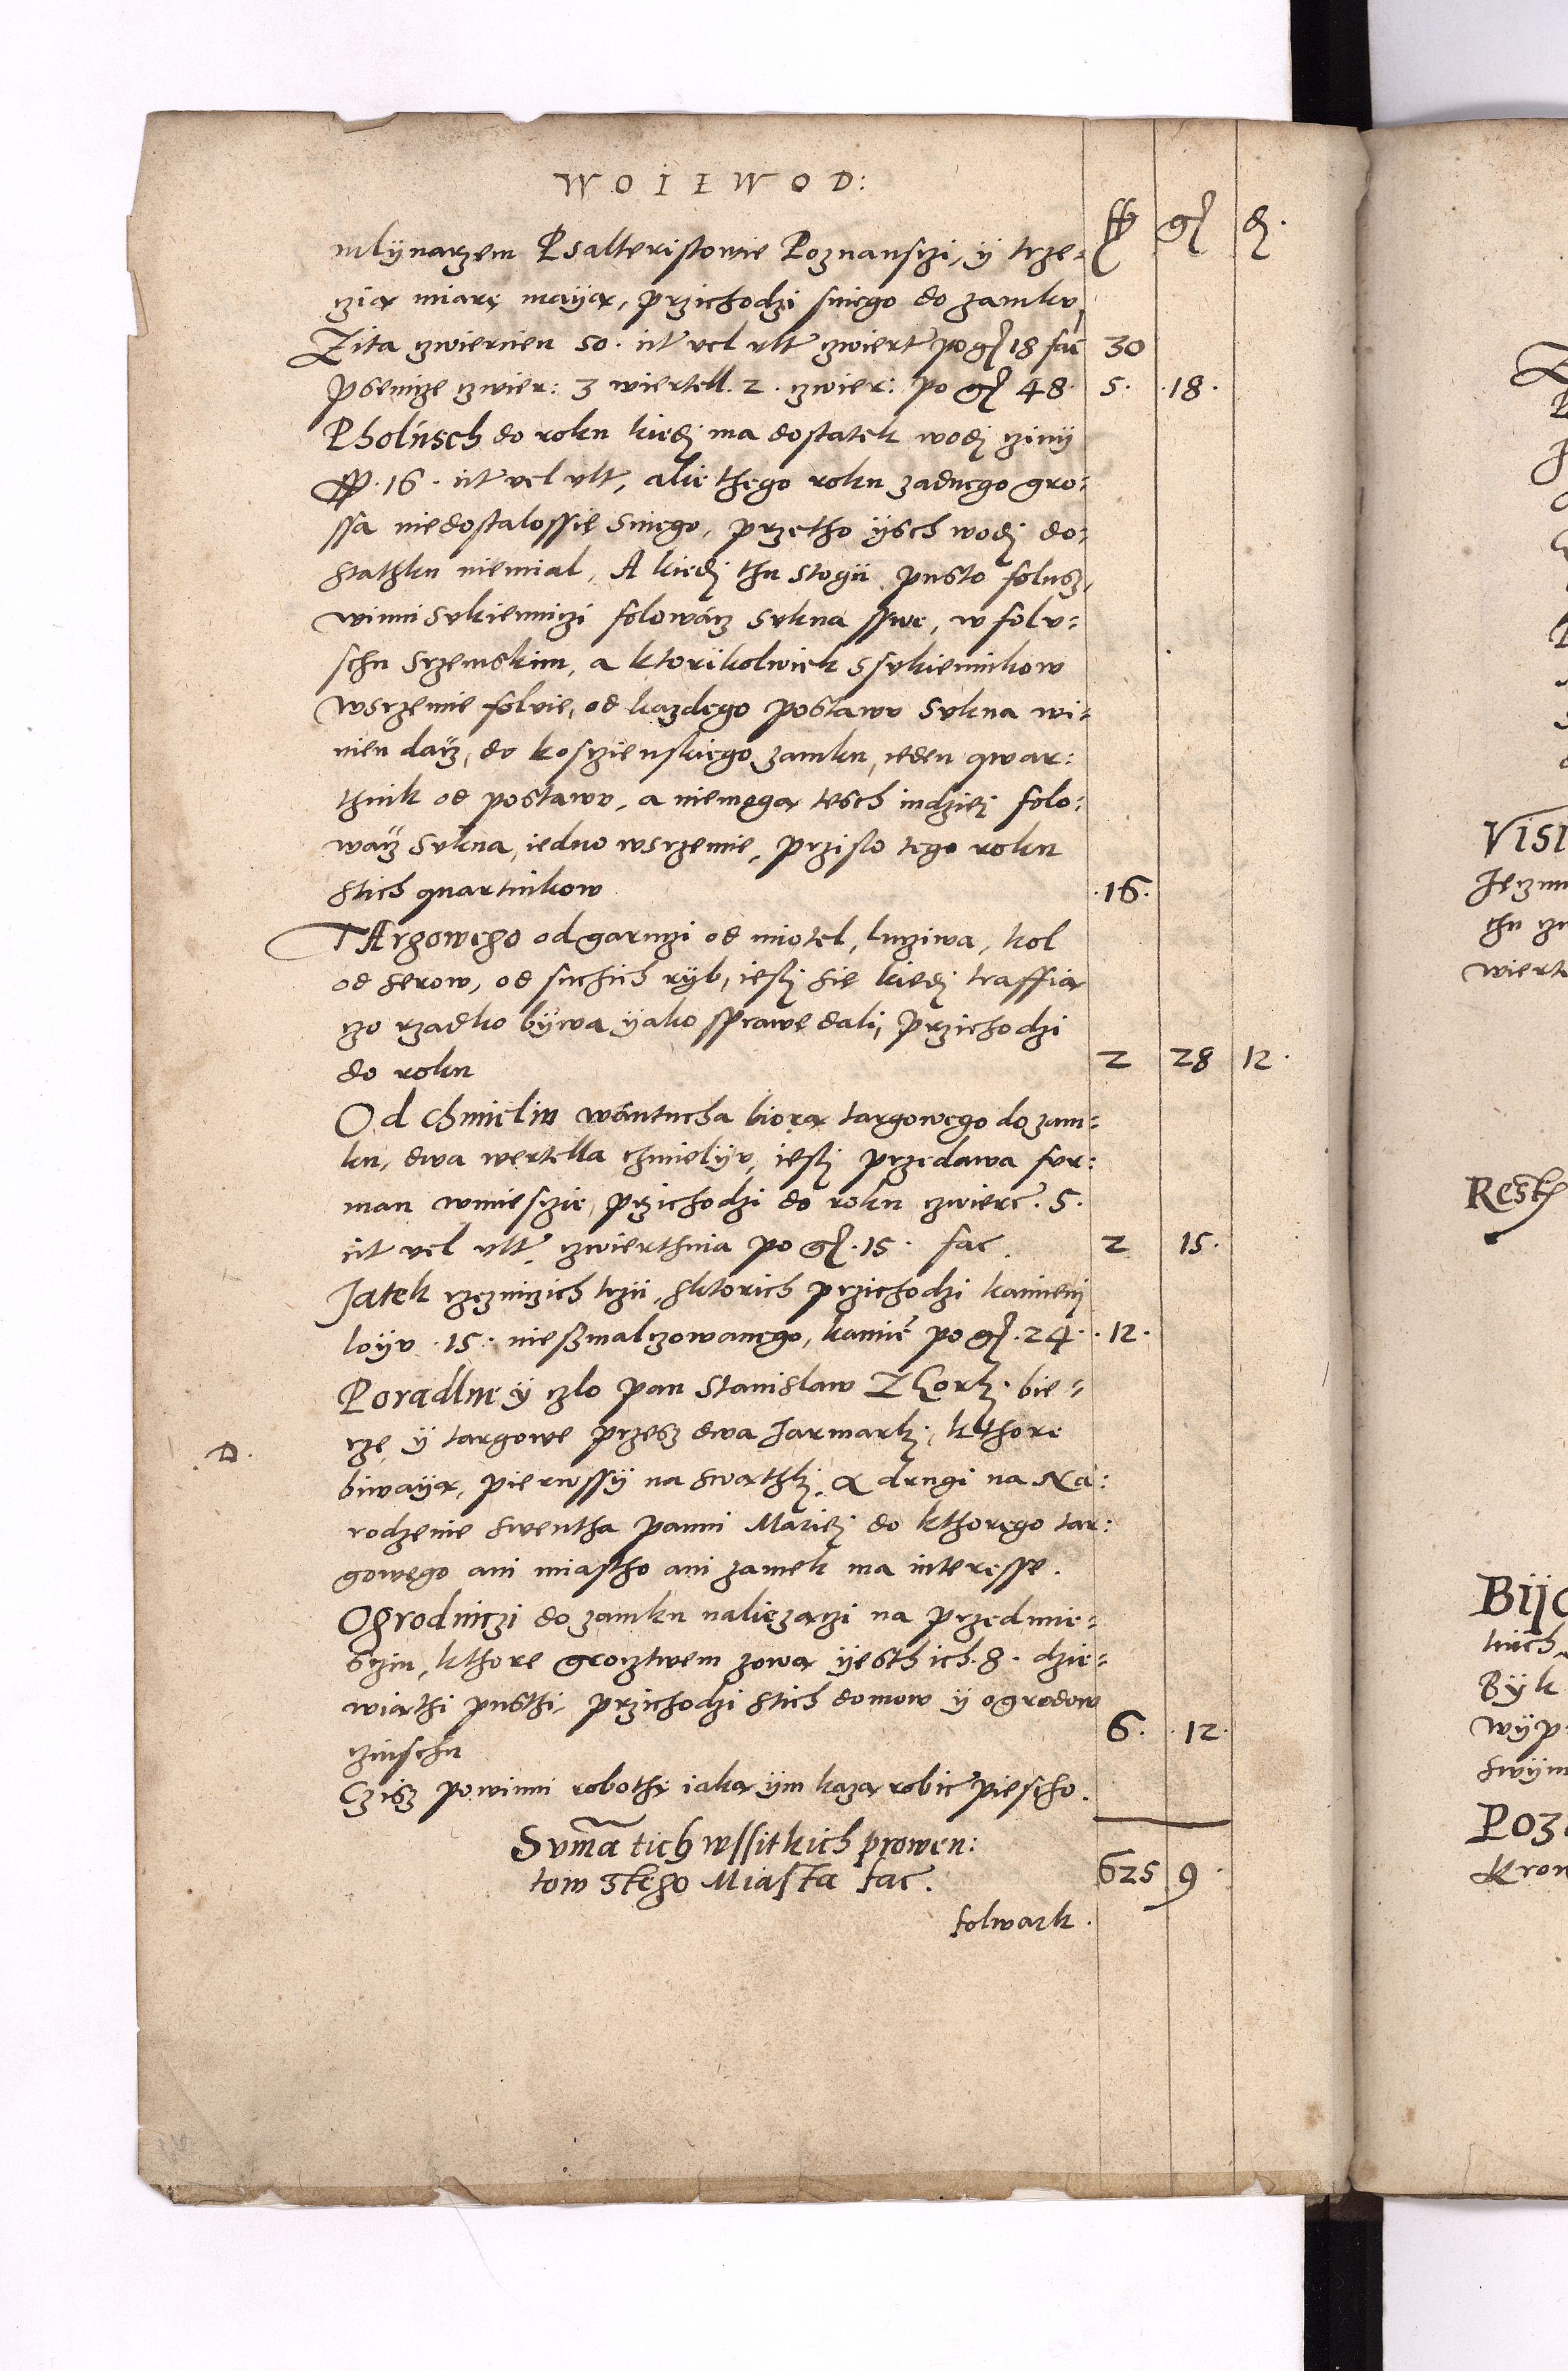 WOIEWOD:
ff gr d.
mlÿnarzem Psalteristowie Poznansczi, ÿ trze-
czią miarę maÿą, przichodzi sniego do zamku,
Zita czwiertien 50. ut vel ult czwiert po gr 18 fac 30
Psenicze czwier: 3 wiertell. 2. czwier: po gr 48. 5. 18.
Pholusch do roku kiedj ma dostatek wodj cziny
ff. 16. ut vel ult, alie thego roku zadnego gro:
ssa niedostalossię sniego, przetho ÿsch wodj do:
stathku niemial, A kiedj thu stogii pusto folusz,
winni sukienniczi folowácz sukna sswe, w folu:
schu Srzemskim, a ktorikolwiek Ssukiennikow
wsrzemie foluie, od kazdego postawu sukna wi:
nien dacz, do kosczienskiego zamku, ieden qwar:
thnik od postawu, a niemogą tesch indziej folo:
wacz sukna, iedno wsrzemie, przislo tego roku
stich quartnikow .16.
TArgowego od garnczi od miotel, lucziwa, kol
od serow, od suchich rÿb, iesli sie kiedj traffią
czo rzadko bÿwa ÿako sprawę dali, przichodzi
do roku 2 28 12.
Od chmieliu wántucha biorą targowego do zam:
ku, dwa wertella chmielÿu, iesli przedawa fur:
man wmiesczie, przichodzi do roku czwierc. 5.
ut vel ult czwierthnia po gr. 15. fac. 2 15.
Jatek rzezniczich trzii, sktorich przichodzi kamieni
loÿu .15. nieszmalczowanego, kamie po gr. 24. .12.
Poradlne ÿ czlo pan Stanislaw Z Gorkj bie-
rze ÿ targowe przesz dwa Jarmarkj, kthore
.D.
biwaÿą, pierwssÿ na swiathkj, a drugi na Na:
rodzenie swentha panni Mariej do kthorego tar:
gowego ani miastho ani zamek ma interesse.
Ogrodniczi do zamku nalieząnczi na przedmie:
sczin, kthore grocztwem zową ÿesth ich. 8. dzie-
wiathi pusthi, przichodzi stich domow ÿ ogrodow
czinschu 6. 12.
Czisz powinni robothę iaką ÿm kazą robic pieścho.
Suma tich wssitkich prowen:
tow stego Miasta fac. 625 9.
folwark.